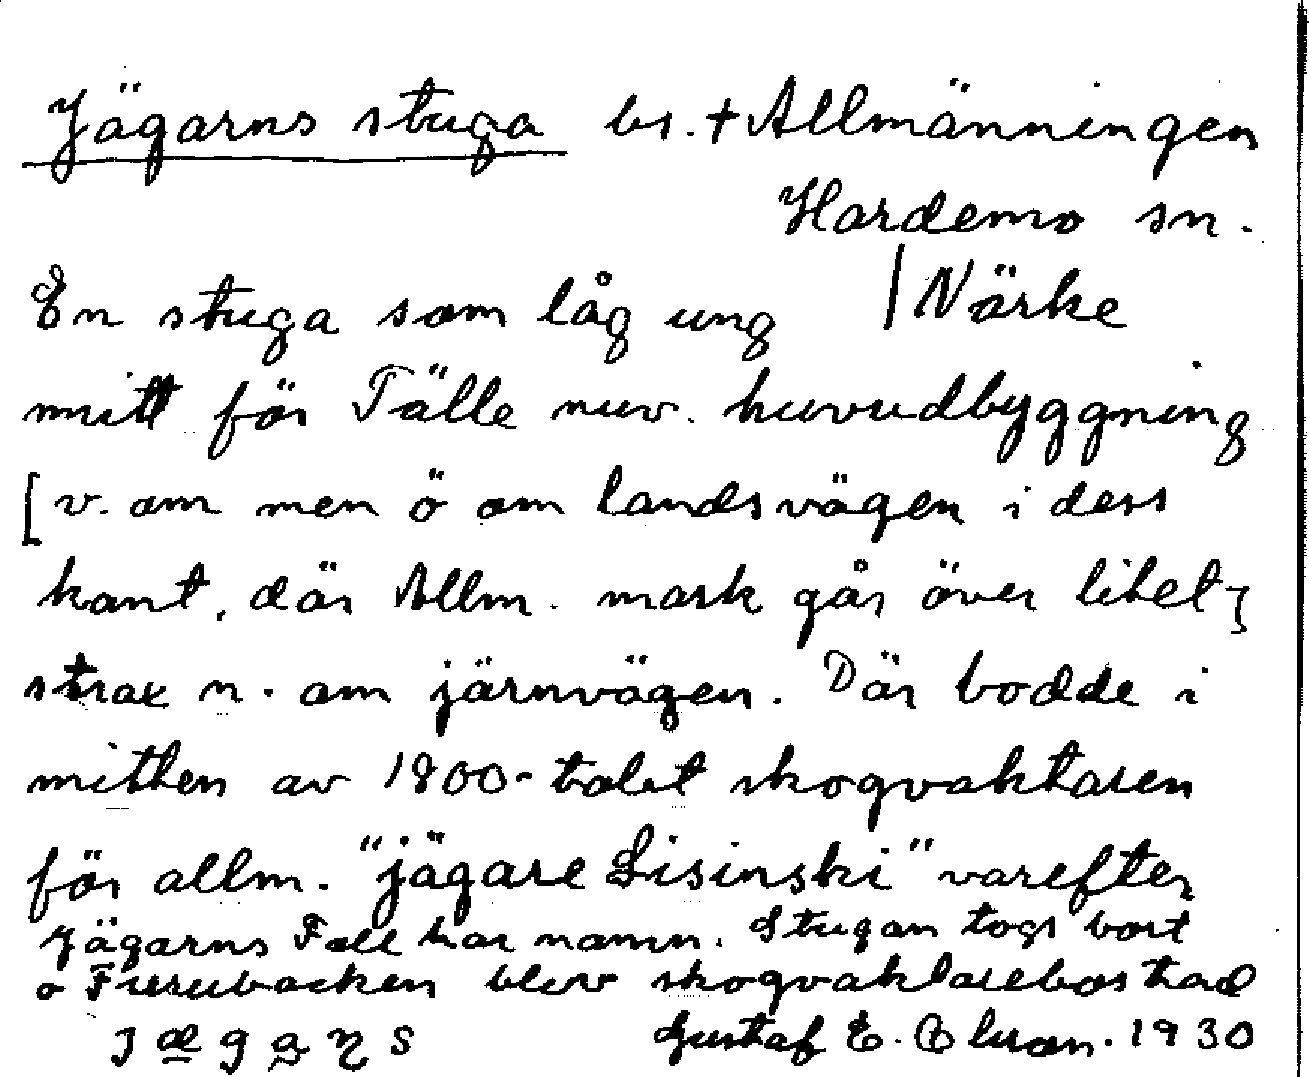 Jägarns stuga bs. + Allmänningen
Hardemo sn.
En stuga som låg ung | Närke
mitt för Fälle nuv. huvudbyggning
[v. om men ö om landsvägen i dess
kant, där Allm. mark går över litet]
strax n. om järnvägen. Där bodde i
mitten av 1800-talet skogvaktaren
för allm. "jägare Lisinski" varefter
Jägarns Fall har namn. Stugan togs bort
o Furubacken blev skogvaktarebostad
Gustaf E. 1930